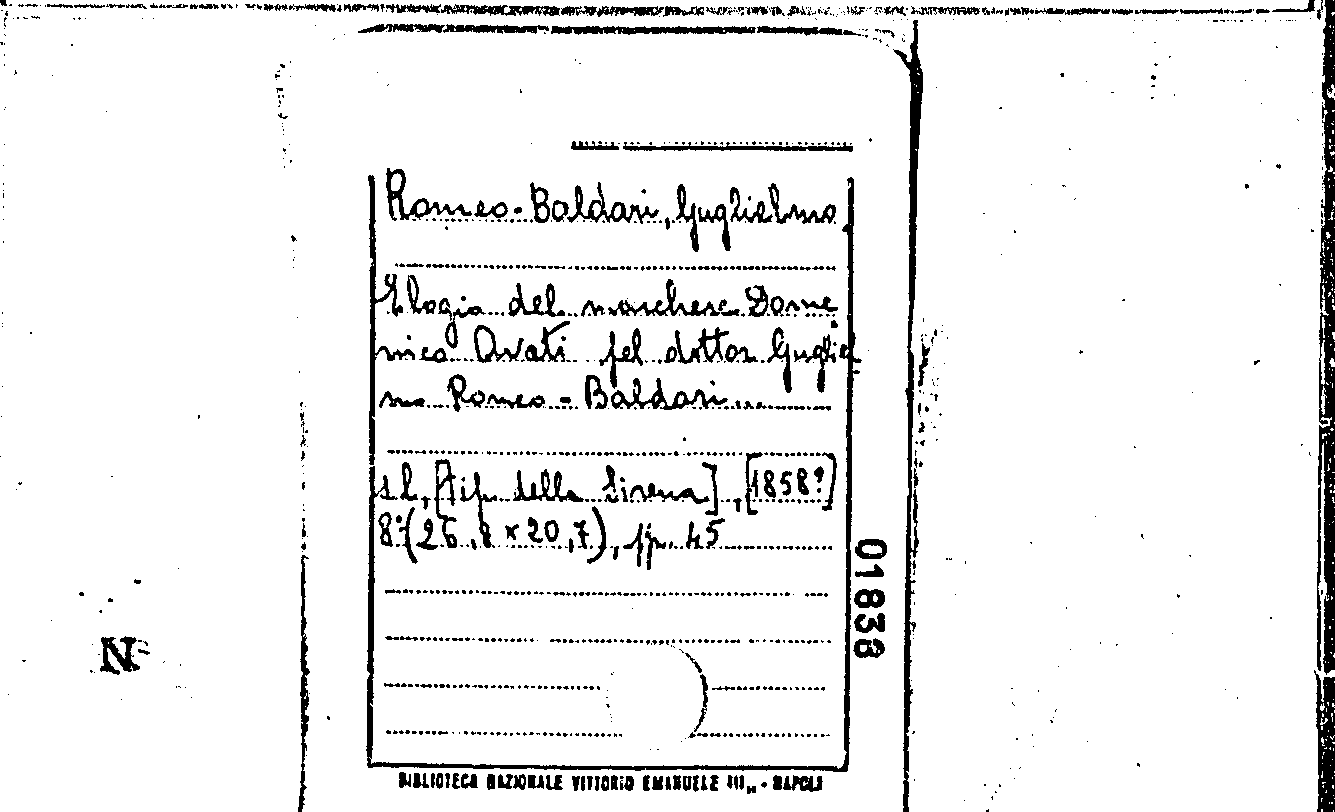 Romeo-Baldari, Guglielmo
Elogio del marchese Dome
nico Avati pel dottor Gugliel
mo Romeo-Baldari...
s.l., [tip. della Sirena], [1858?]
8° (26,8 x 20,7), pp. 45
01838
N
BIBLIOTECA NAZIONALE VITTORIO EMANUELE III„ - NAPOLI